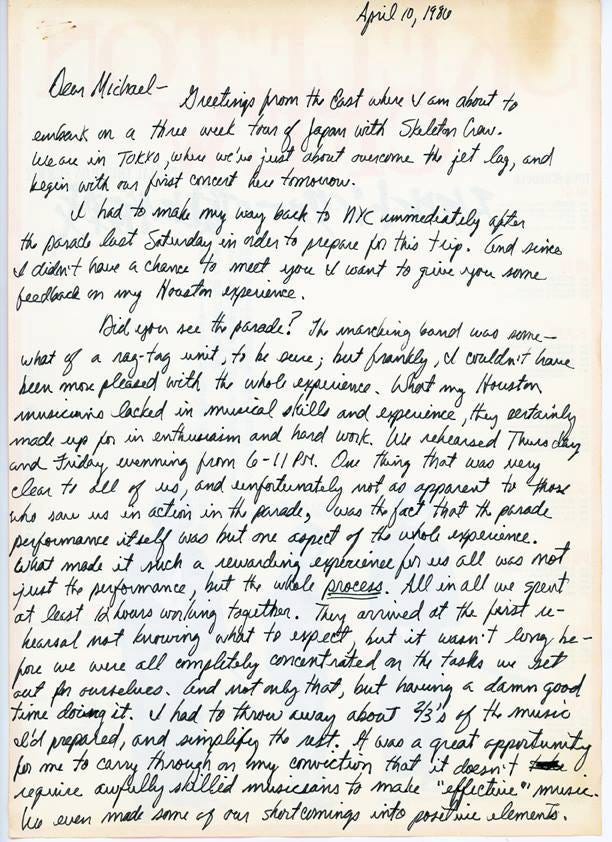 April 10, 1986
Dear Michael-
Greetings from the East where I am about to
embark on a three week tour of Japan with Skeleton Crew.
We are in TOKYO, where we've just about overcome the jet lag, and
begin with our first concert here tomorrow.
I had to make my way back to NYC immediately after
the parade last Saturday in order to prepare for this trip. And since
I didn't have a chance to meet you I want to give you some
feedback on my Houston experience.
Did you see the parade? The marching band was some-
what of a rag-tag unit, to be sure; but frankly, I couldn't have
been more pleased with the whole experience. What my Houston
musicians lacked in musical skills and experience, they certainly
made up for in enthusiasm and hard work. We rehearsed Thursday
and Friday evenning from 6-11 PM. One thing that was very
clear to all of us, and unfortunately not as apparent to those
who saw us in action in the parade, was the fact that the parade
performance itself was but one aspect of the whole experience.
What made it such a rewarding experience for us all was not
just the performance, but the whole process. All in all we spent
at least 12 hours working together. They arrived at the first re-
hearsal not knowing what to expect, but it wasn't long be-
fore we were all completely concentrated on the tasks we set
out for ourselves. And not only that, but having a damn good
time doing it. I had to throw away about 2/3's of the music
I'd prepared, and simplify the rest. It was a great opportunity
for me to carry through on my conviction that it doesn't
require awfully skilled musicians to make "effective" music.
We even made some of our shortcomings into positive elements.